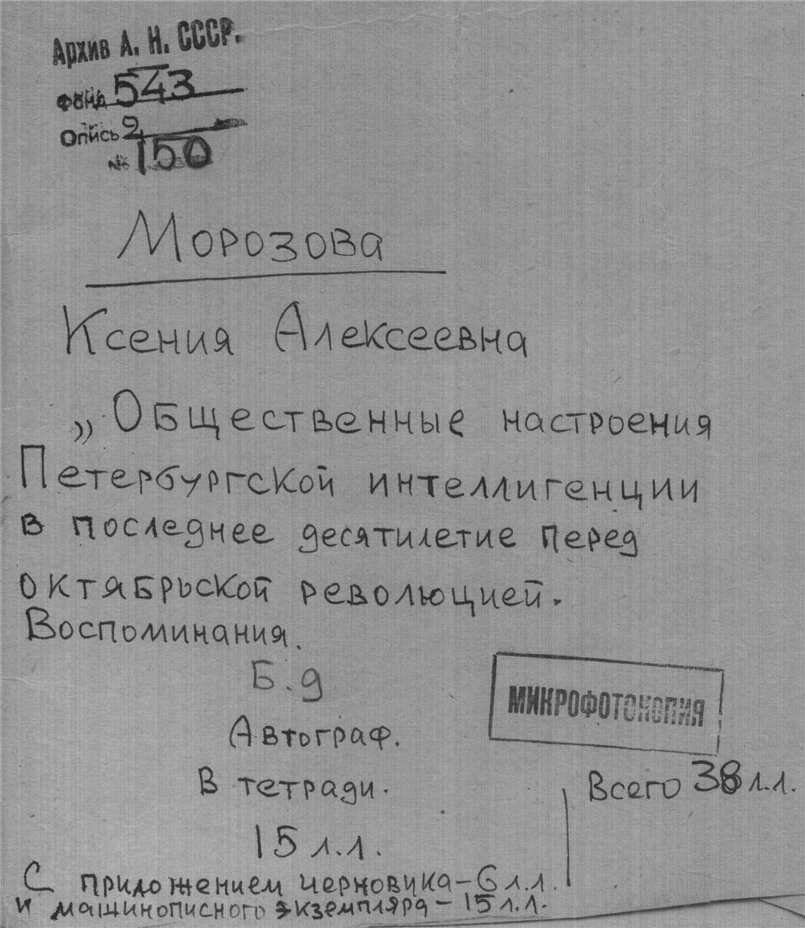 Архив А. Н. СССР.
Фонд 543
Опись 2
№ 150
Морозова
Ксения Алексеевна
„Общественные настроения
Петербургской интеллигенции
в последнее десятилетие перед
октябрьской революцией.
Воспоминания.
Б.д
Автограф.
В тетради.
15 л.л.
МИКРОФОТОКОПИЯ
Всего 38 л.л.
С приложением черновика – 6 л.л.
и машинописного экземпляра – 15 л.л.